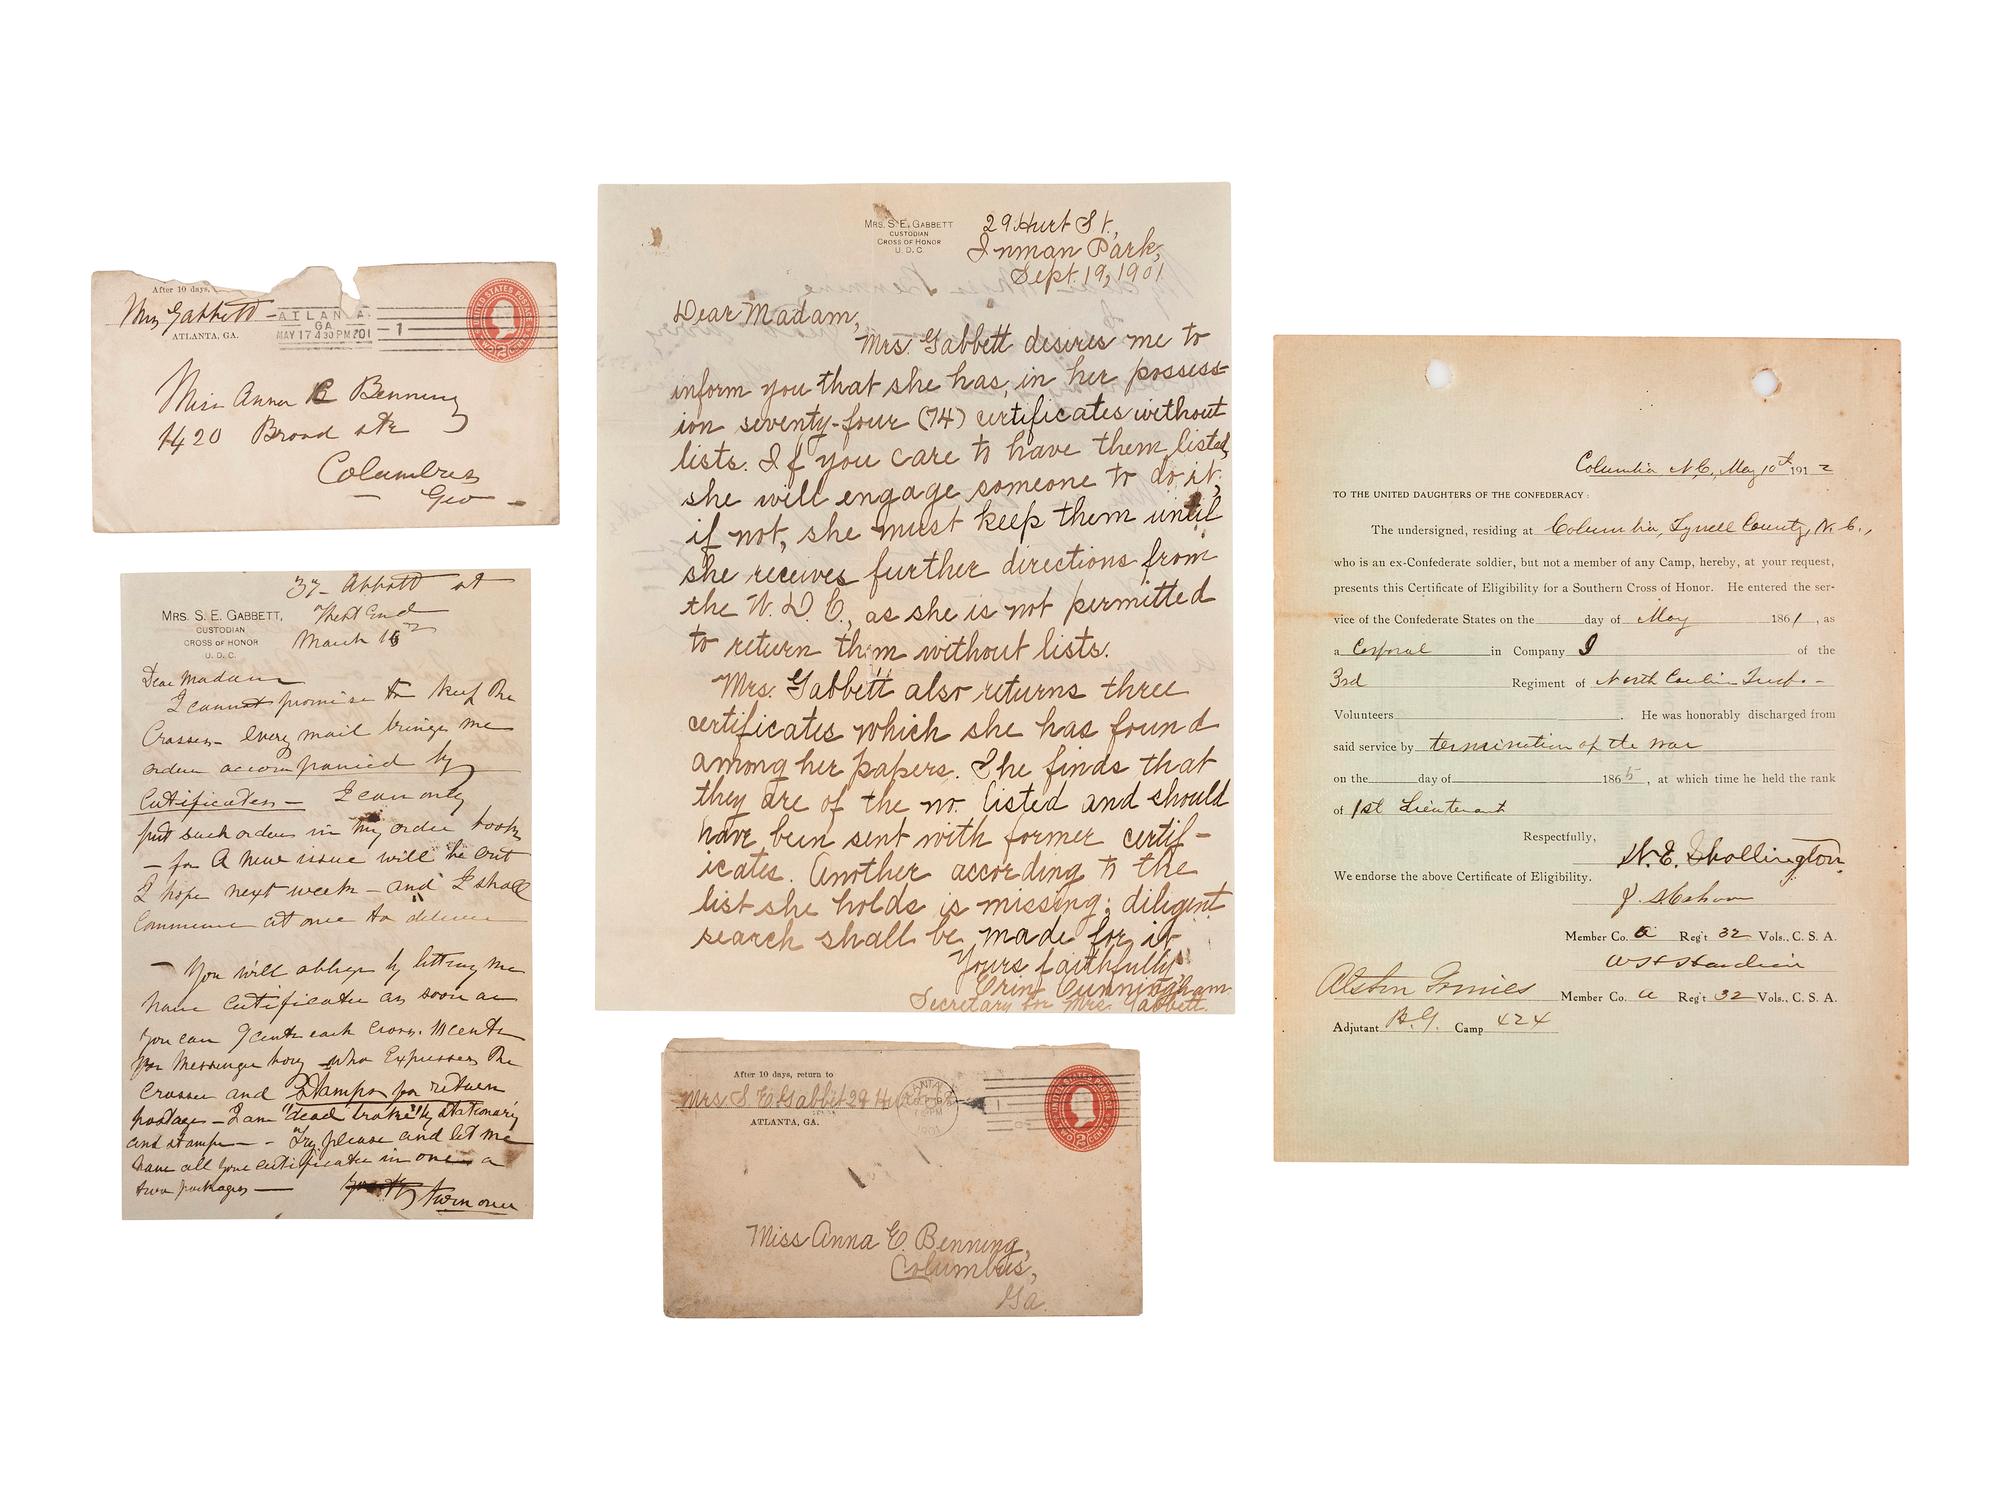 After 10 days,
Mrs Gabbett
ATLANTA, GA.
ATLANTA
GA
MAY 17 4 30 PM '01
1
UNITED STATES POSTAGE
TWO 2 CENTS
Miss Anna C Benning
1420 Broad str
Columbus
Geo
MRS. S. E. GABBETT,
CUSTODIAN
CROSS OF HONOR
U. D. C.
37 Abbott st
West End
March 16
Dear Madam
I cannot promise to keep the
Crosses - every mail brings me
orders accompanied by
Certificates - I can only
put such orders in my order book
- for A new issue will be out
I hope next week - and I shall
commence at once to deliver
- You will oblige by letting me
have certificates as soon as
you can 9 cents each Cross. 10 cents
for Messenger boy who Expresses the
Crosses and Stamps for return
postage - I am "dead broke" by stationary
and stamps - - Try please and let me
have all your certificates in one a
two packages -
turn over
MRS. S. E. GABBETT
CUSTODIAN
CROSS OF HONOR
U. D. C
29 Hurt St.,
Inman Park,
Sept. 19, 1901
Dear Madam,
Mrs. Gabbett desires me to
inform you that she has, in her possess-
ion seventy-four (74) certificates without
lists. If you care to have them listed,
she will engage someone to do it;
if not, she must keep them until
she receives further directions from
the U. D. C., as she is not permitted
to return them without lists.
Mrs. Gabbett also returns three
certificates which she has found
among her papers. She finds that
they are of the no. listed and should
have been sent with former certif-
icates. Another according to the
list she holds is missing; diligent
search shall be made for it
Yours faithfully
Erin Cunningham
Secretary for Mrs. Gabbett.
After 10 days, return to
Mrs S. E. Gabbett 29 Hurt St
ATLANTA, GA.
1901
UNITED STATES POSTAGE
TWO 2 CENTS
Miss Anna C. Benning,
Columbus,
Ga.
Columbia N.C., May 10th 1912
TO THE UNITED DAUGHTERS OF THE CONFEDERACY:
The undersigned, residing at Columbia, Tyrrell County, N. C.,
who is an ex-Confederate soldier, but not a member of any Camp, hereby, at your request,
presents this Certificate of Eligibility for a Southern Cross of Honor. He entered the ser-
vice of the Confederate States on the day of May 1861, as
a Corporal in Company I of the
3rd Regiment of North Carolina Troops -
Volunteers. He was honorably discharged from
said service by termination of the war
on the day of 1865, at which time he held the rank
of 1st Lieutenant
Respectfully,
We endorse the above Certificate of Eligibility.
Member Co. A Reg't 32 Vols., C. S. A.
Alston Grimes Member Co. A Reg't 32 Vols., C. S. A.
Adjutant B.G. Camp 424